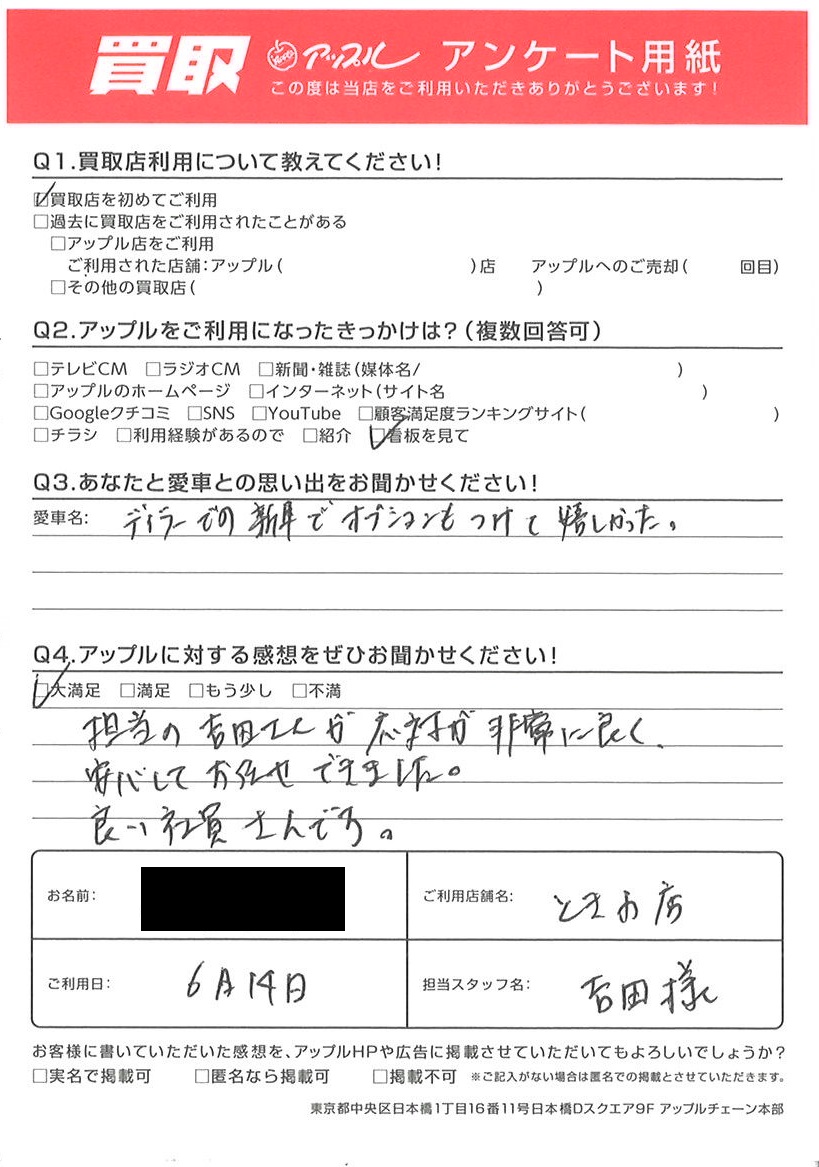 買取 アップル アンケート用紙
この度は当店をご利用いただきありがとうございます！
Q1.買取店利用について教えてください！
☑買取店を初めてご利用
□過去に買取店をご利用されたことがある
□アップル店をご利用
ご利用された店舗：アップル（　　　）店　アップルへのご売却（　　　回目）
□その他の買取店（　　　）
Q2.アップルをご利用になったきっかけは？（複数回答可）
□テレビCM □ラジオCM □新聞・雑誌（媒体名/　　　）
□アップルのホームページ □インターネット（サイト名　　　）
□Googleクチコミ □SNS □YouTube □顧客満足度ランキングサイト（　　　）
□チラシ □利用経験があるので □紹介 ☑看板を見て
Q3.あなたと愛車との思い出をお聞かせください！
愛車名： ディラーでの新車でオプションもつけて嬉しかった。
Q4.アップルに対する感想をぜひお聞かせください！
☑大満足 □満足 □もう少し □不満
担当の吉田さんが応対が非常に良く、
安心してお任せできました。
良い社員さんです。
お名前：
ご利用店舗名： ときお店
ご利用日： 6月14日
担当スタッフ名： 吉田様
お客様に書いていただいた感想を、アップルHPや広告に掲載させていただいてもよろしいでしょうか？
□実名で掲載可 □匿名なら掲載可 □掲載不可 ※ご記入がない場合は匿名での掲載とさせていただきます。
東京都中央区日本橋1丁目16番11号日本橋Dスクエア9F アップルチェーン本部